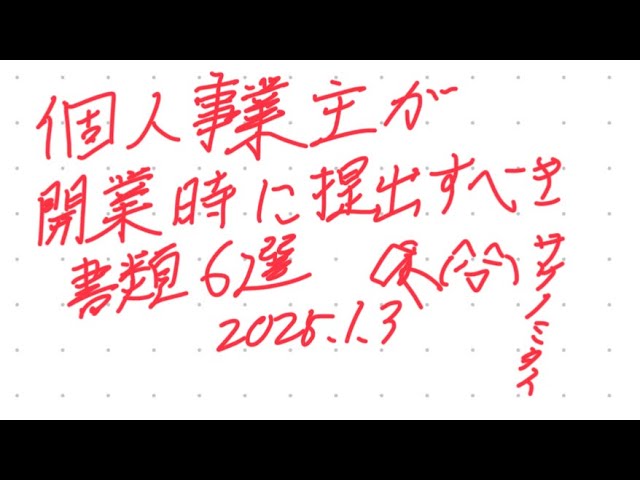 個人事業主が
開業時に提出すべき
書類6選
2025.1.3
サケノミタイ